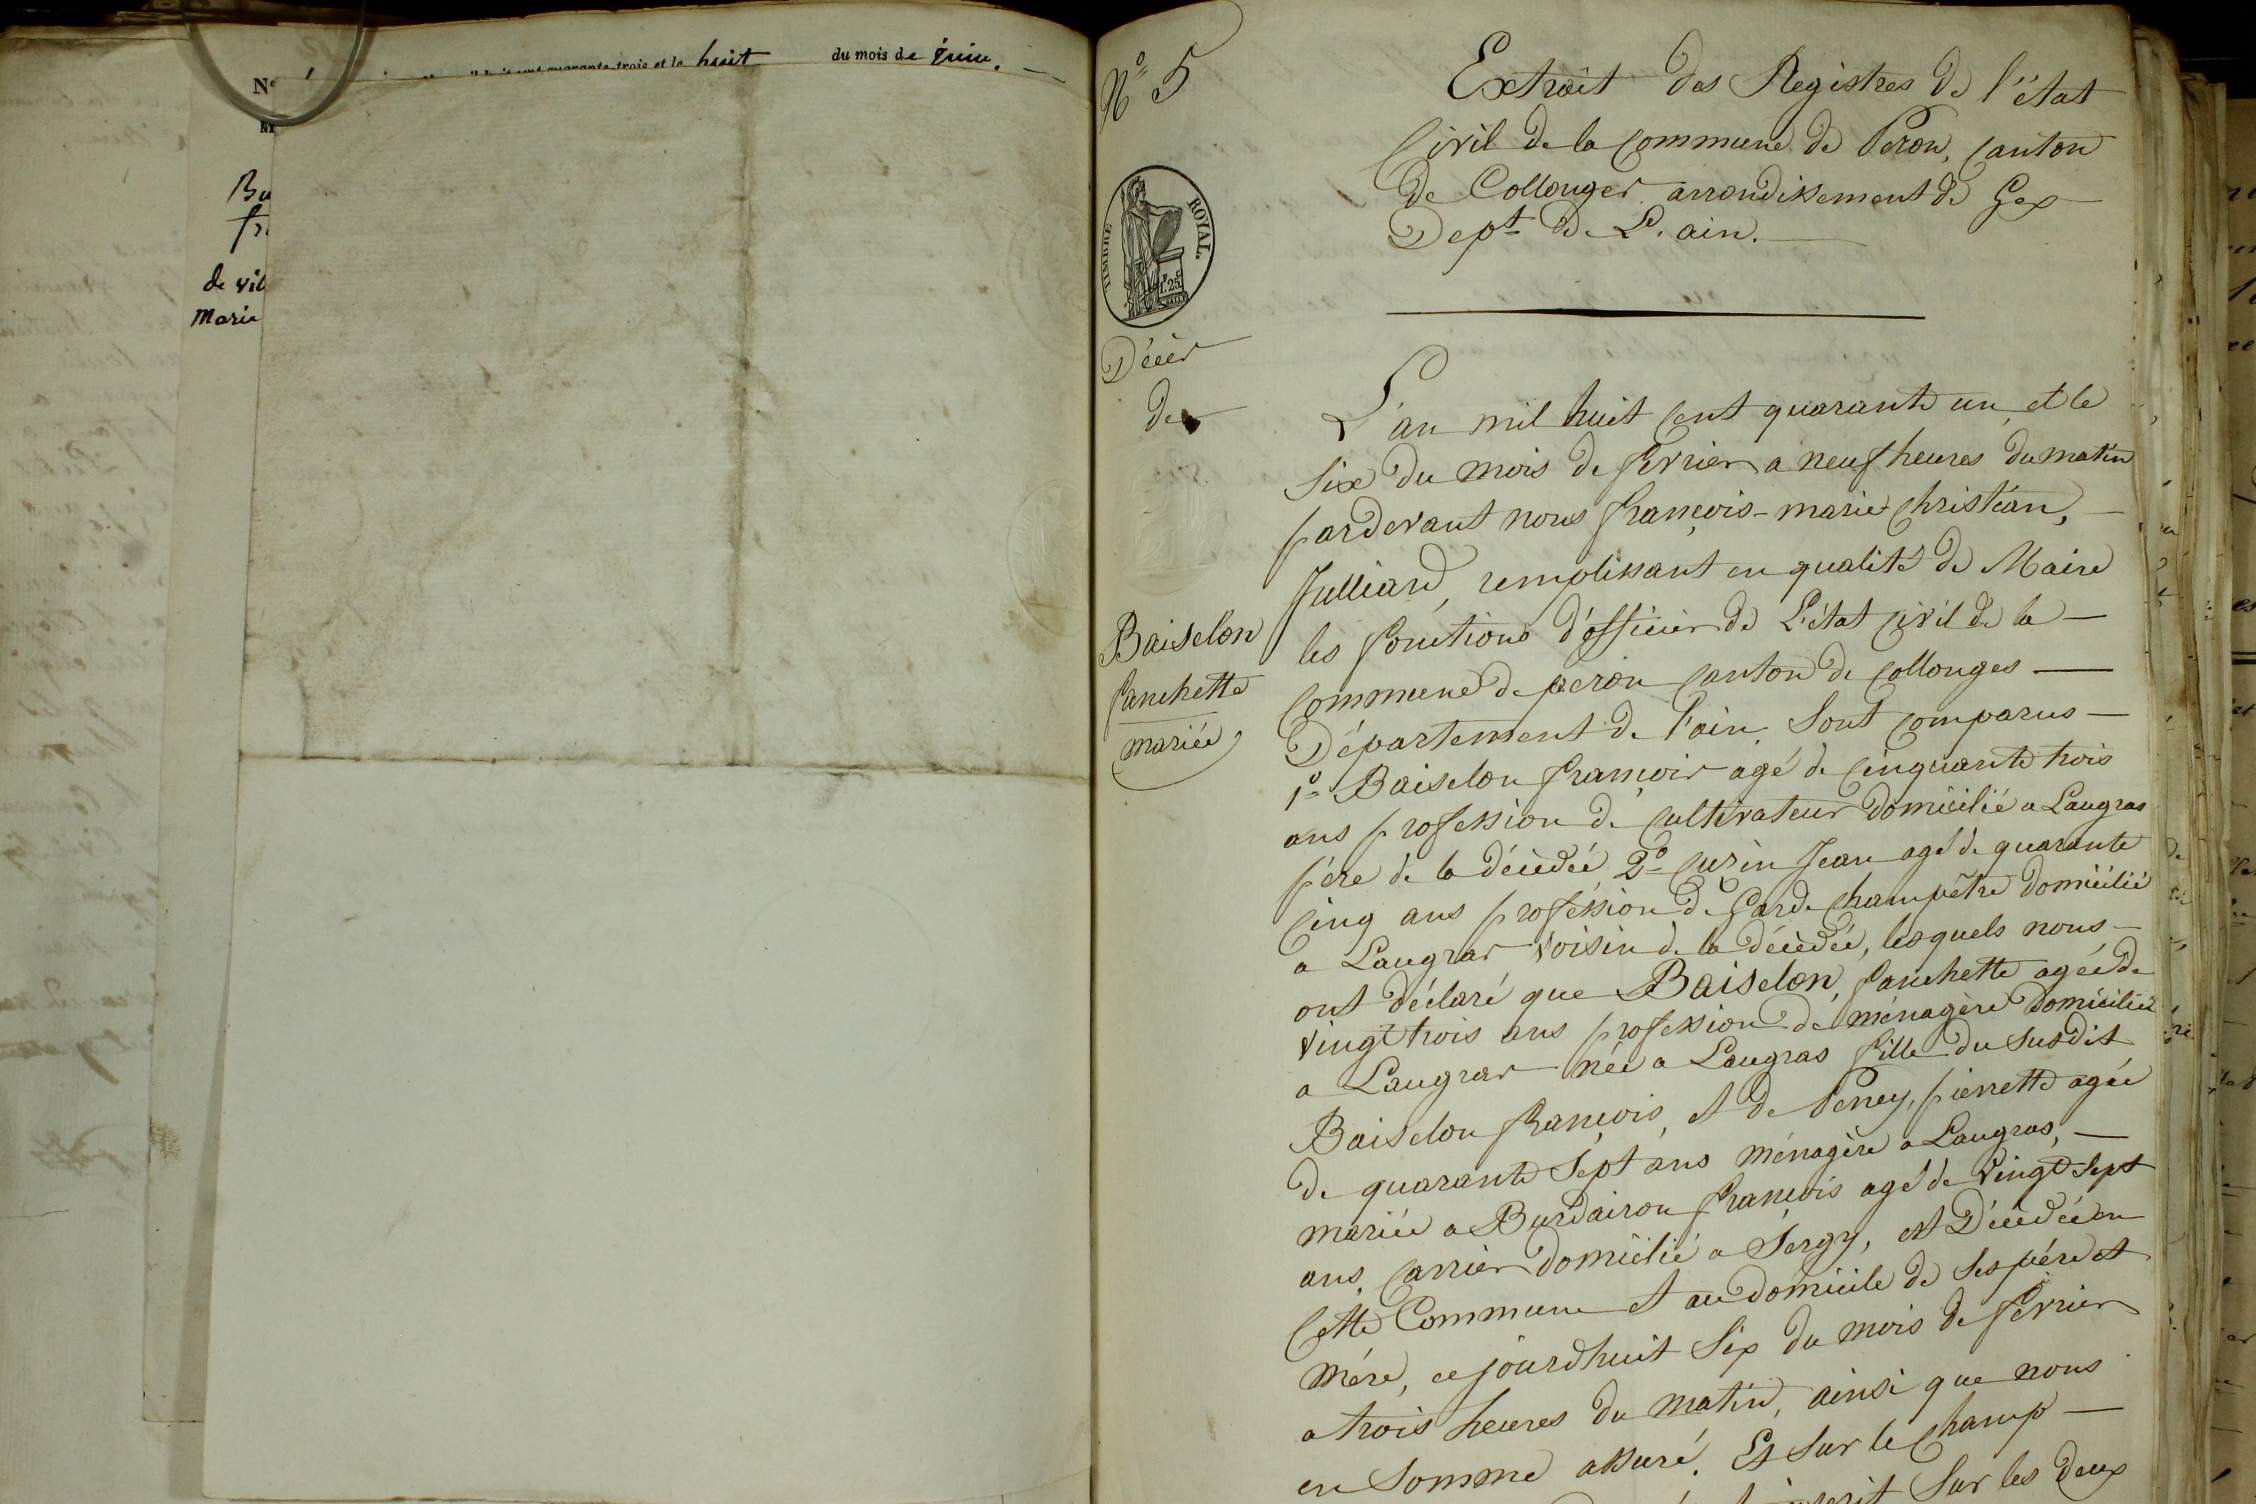 quarante-trois et le huit du mois de Juin.
N°
Ba
fr
de vil
Marie
N° 5
TIMBRE ROYAL.
1f.25c
Décès
de
Baiselon
fanchette
mariée
Extrait des Registres de l'état
Civil de la Commune de Peron, Canton
de Collonges arrondissement de Gex
Dept de L'ain.
L'an mil huit Cent quarante un, et le
Six du mois de fevrier a neuf heures du matin
pardevant nous françois-marie Christéan,
Julliard, remplissant en qualité de Maire
les fonctions d'officier de L'état Civil de la
Commune de peron Canton de Collonges
Département de l'ain, Sont Comparus
1° Baiselon françois agé de Cinquante trois
ans profession de Cultivateur domicilié a Laugras
père de la décédée 2° Jean agé de quarante
Cinq ans profession de Garde Champêtre domicilié
a Laugras Voisin de la décédée, lesquels nous
ont déclaré que Baiselon, fanchette agée de
Vingt trois ans profession de ménagère domiciliée
a Laugras née a Laugras fille du Susdit
Baiselon françois, et de Peney, pierrette agée
de quarante Sept ans ménagère a Laugras,
mariée a Burdairon françois agé de Vingt Sept
ans, Carrier domicilié a Sergy, est Décédée en
Cette Commune et au domicile de Ses père et
Mère, cejourdhuit Six du mois de fevrier
a trois heures du matin, ainsi que nous
en Somme assuré. Et Sur le Champ
Sur les deux